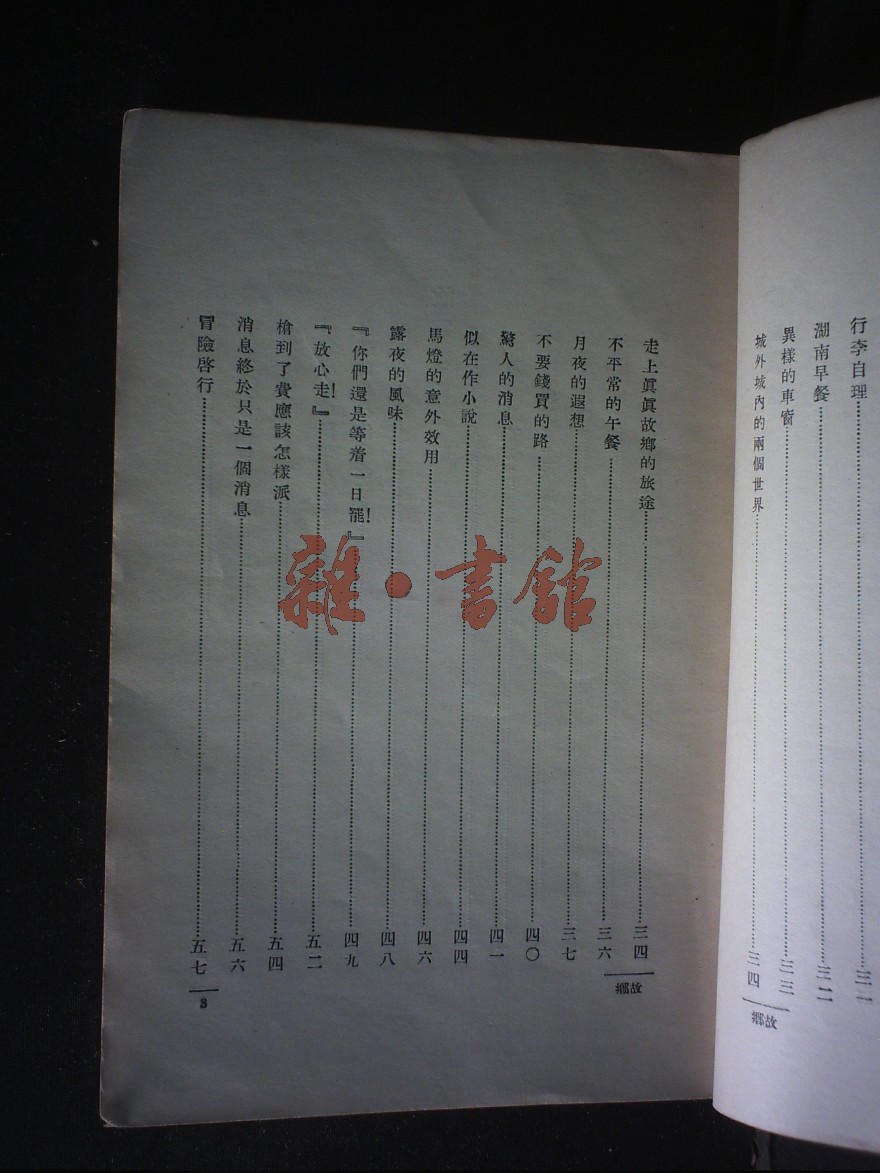 行李自理……三一
湖南早餐……三二
異樣的車窗……三三
城外城内的兩個世界……三四
故鄉
走上眞眞故鄉的旅途……三四
不平常的午餐……三六
月夜的遐想……三七
不要錢買的路……四〇
驚人的消息……四一
似在作小說……四四
馬燈的意外效用……四六
露夜的風味……四八
『你們還是等着一日罷!』……四九
『放心走!』……五二
槍到了貴應該怎樣派……五四
消息終於只是一個消息……五六
冒險啓行……五七
故鄉
3
雜·書館